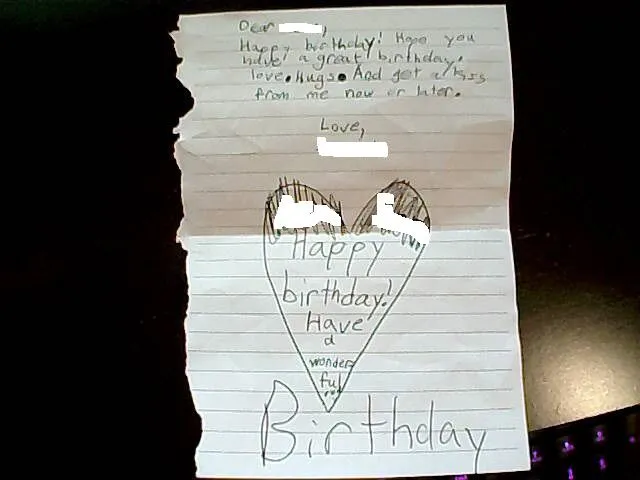 Dear ,
Happy birthday! Hope you
have a great birthday.
love. Hugs. And get a kiss
from me now or later.
Love,
Happy
birthday!
Have
a
wonder
ful
Birthday